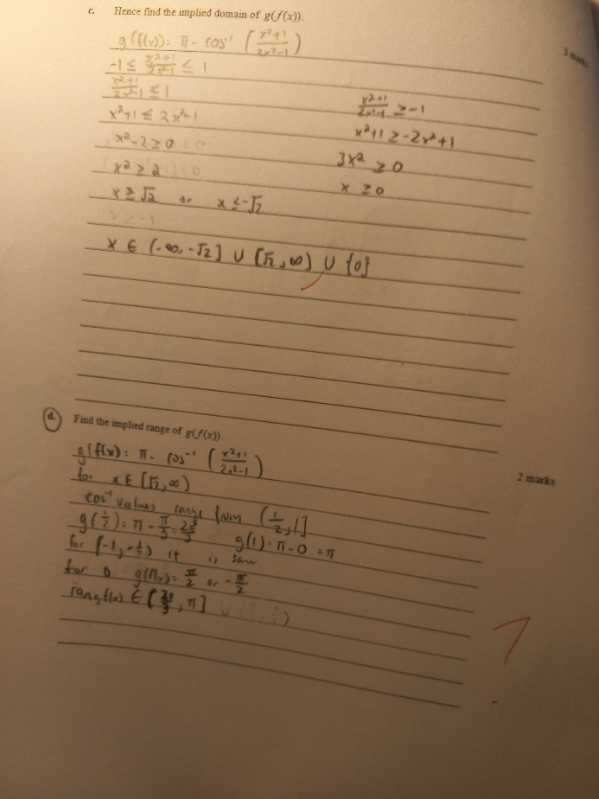 c. Hence find the implied domain of g(f(x)).
3 marks
g(f(x)): π - cos⁻¹ ( (x²+1)/(2x²-1) )
-1 ≤ (x²+1)/(2x²-1) ≤ 1
(x²+1)/(2x²-1) ≤ 1
x²+1 ≤ 2x²-1
x²-2 ≥ 0
x² ≥ 2
x ≥ √2 or x ≤ -√2
(x²+1)/(2x²-1) ≥ -1
x²+1 ≥ -2x²+1
3x² ≥ 0
x ≥ 0
x ∈ (-∞, -√2] ∪ [√2, ∞) ∪ {0}
d. Find the implied range of g(f(x)).
2 marks
g(f(x)): π - cos⁻¹ ( (x²+1)/(2x²-1) )
for x ∈ [√2, ∞)
cos⁻¹ values range from (1/2, 1]
g(1/2) = π - π/3 = 2π/3 g(1) = π - 0 = π
for it is
for 0 = π/2 or -π/2
∈ (2π/3, π]